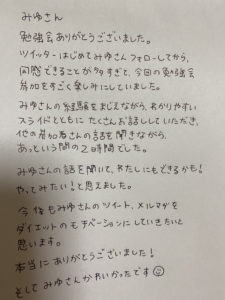 みゆさん
勉強会ありがとうございました。
ツイッターはじめてみゆさんフォローしてから、
同感できることが多すぎて、今回の勉強会
参加をすごく楽しみにしていました。
みゆさんの経験をまじえながら、わかりやすい
スライドとともに たくさんお話ししていただき、
他の参加者さんの話を聞きながら、
あっという間の2時間でした。
みゆさんの話を聞いて、わたしにもできるかも!
やってみたい!と思えました。
今後もみゆさんのツイート、メルマガを
ダイエットのモチベーションにしていきたいと
思います。
本当にありがとうございました!
そして みゆさんかわいかったです